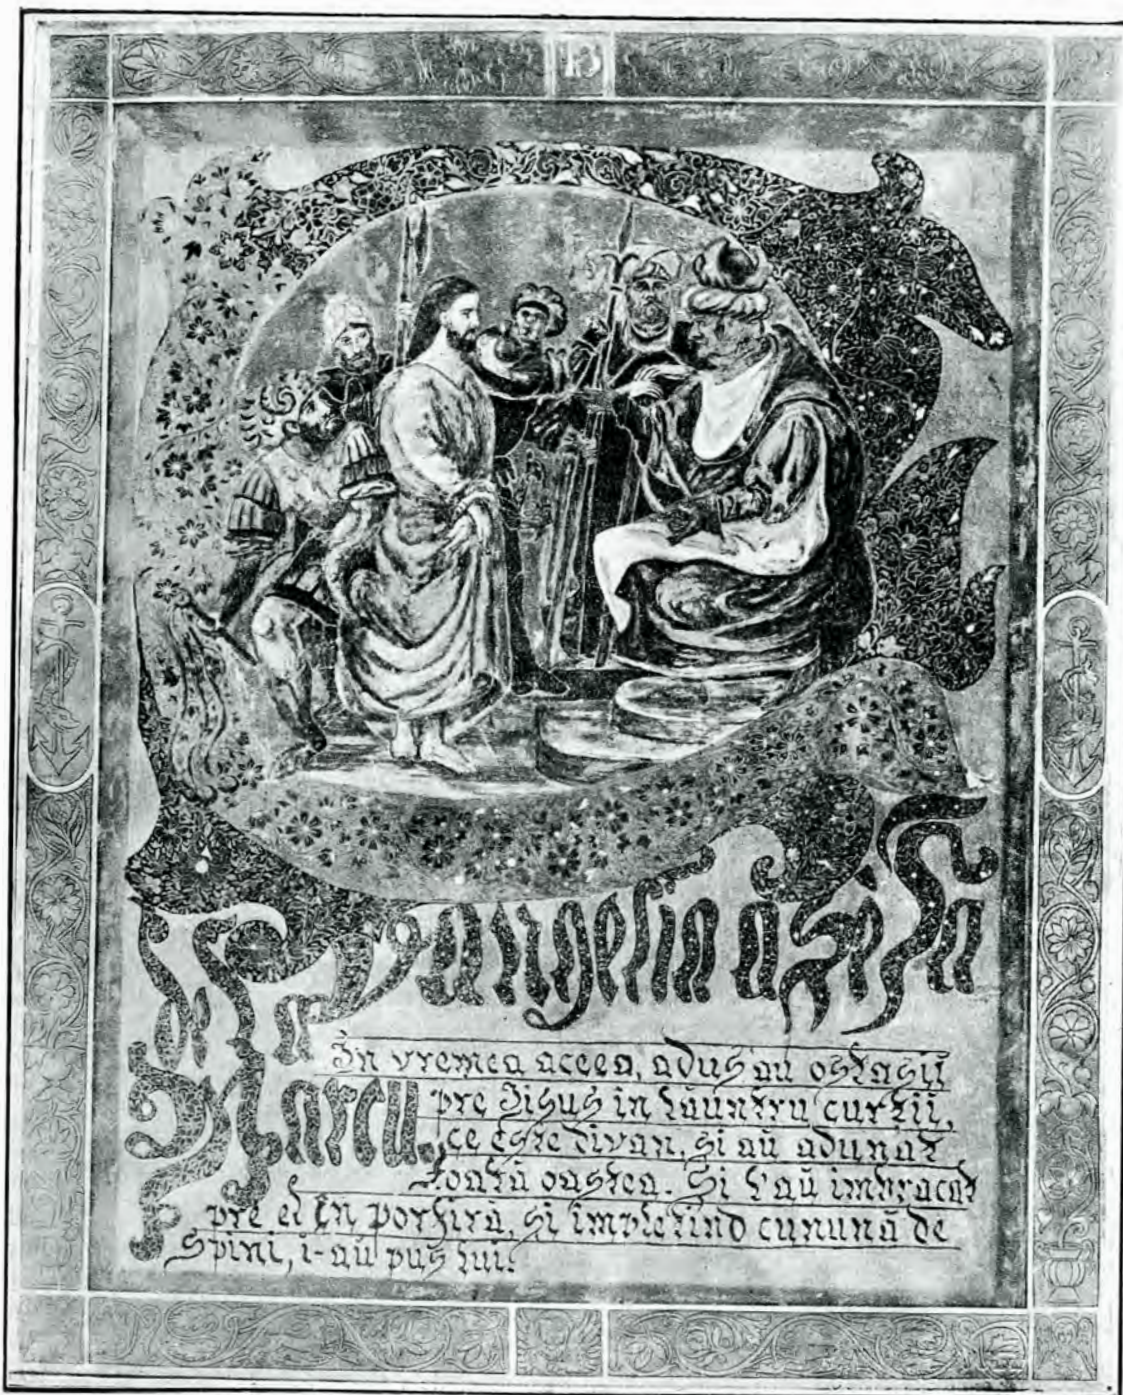 Evangelia a Șésa
de la
Marcu.
În vremea aceea, adus'au ostașiĭ
pre Iisus in lăuntru curții,
ce este divan, și aŭ adunat
toată oastea. Și l'aŭ imbracat
pre el în porfiră, și impletind cunună de
Spini, i-aŭ pus lui.